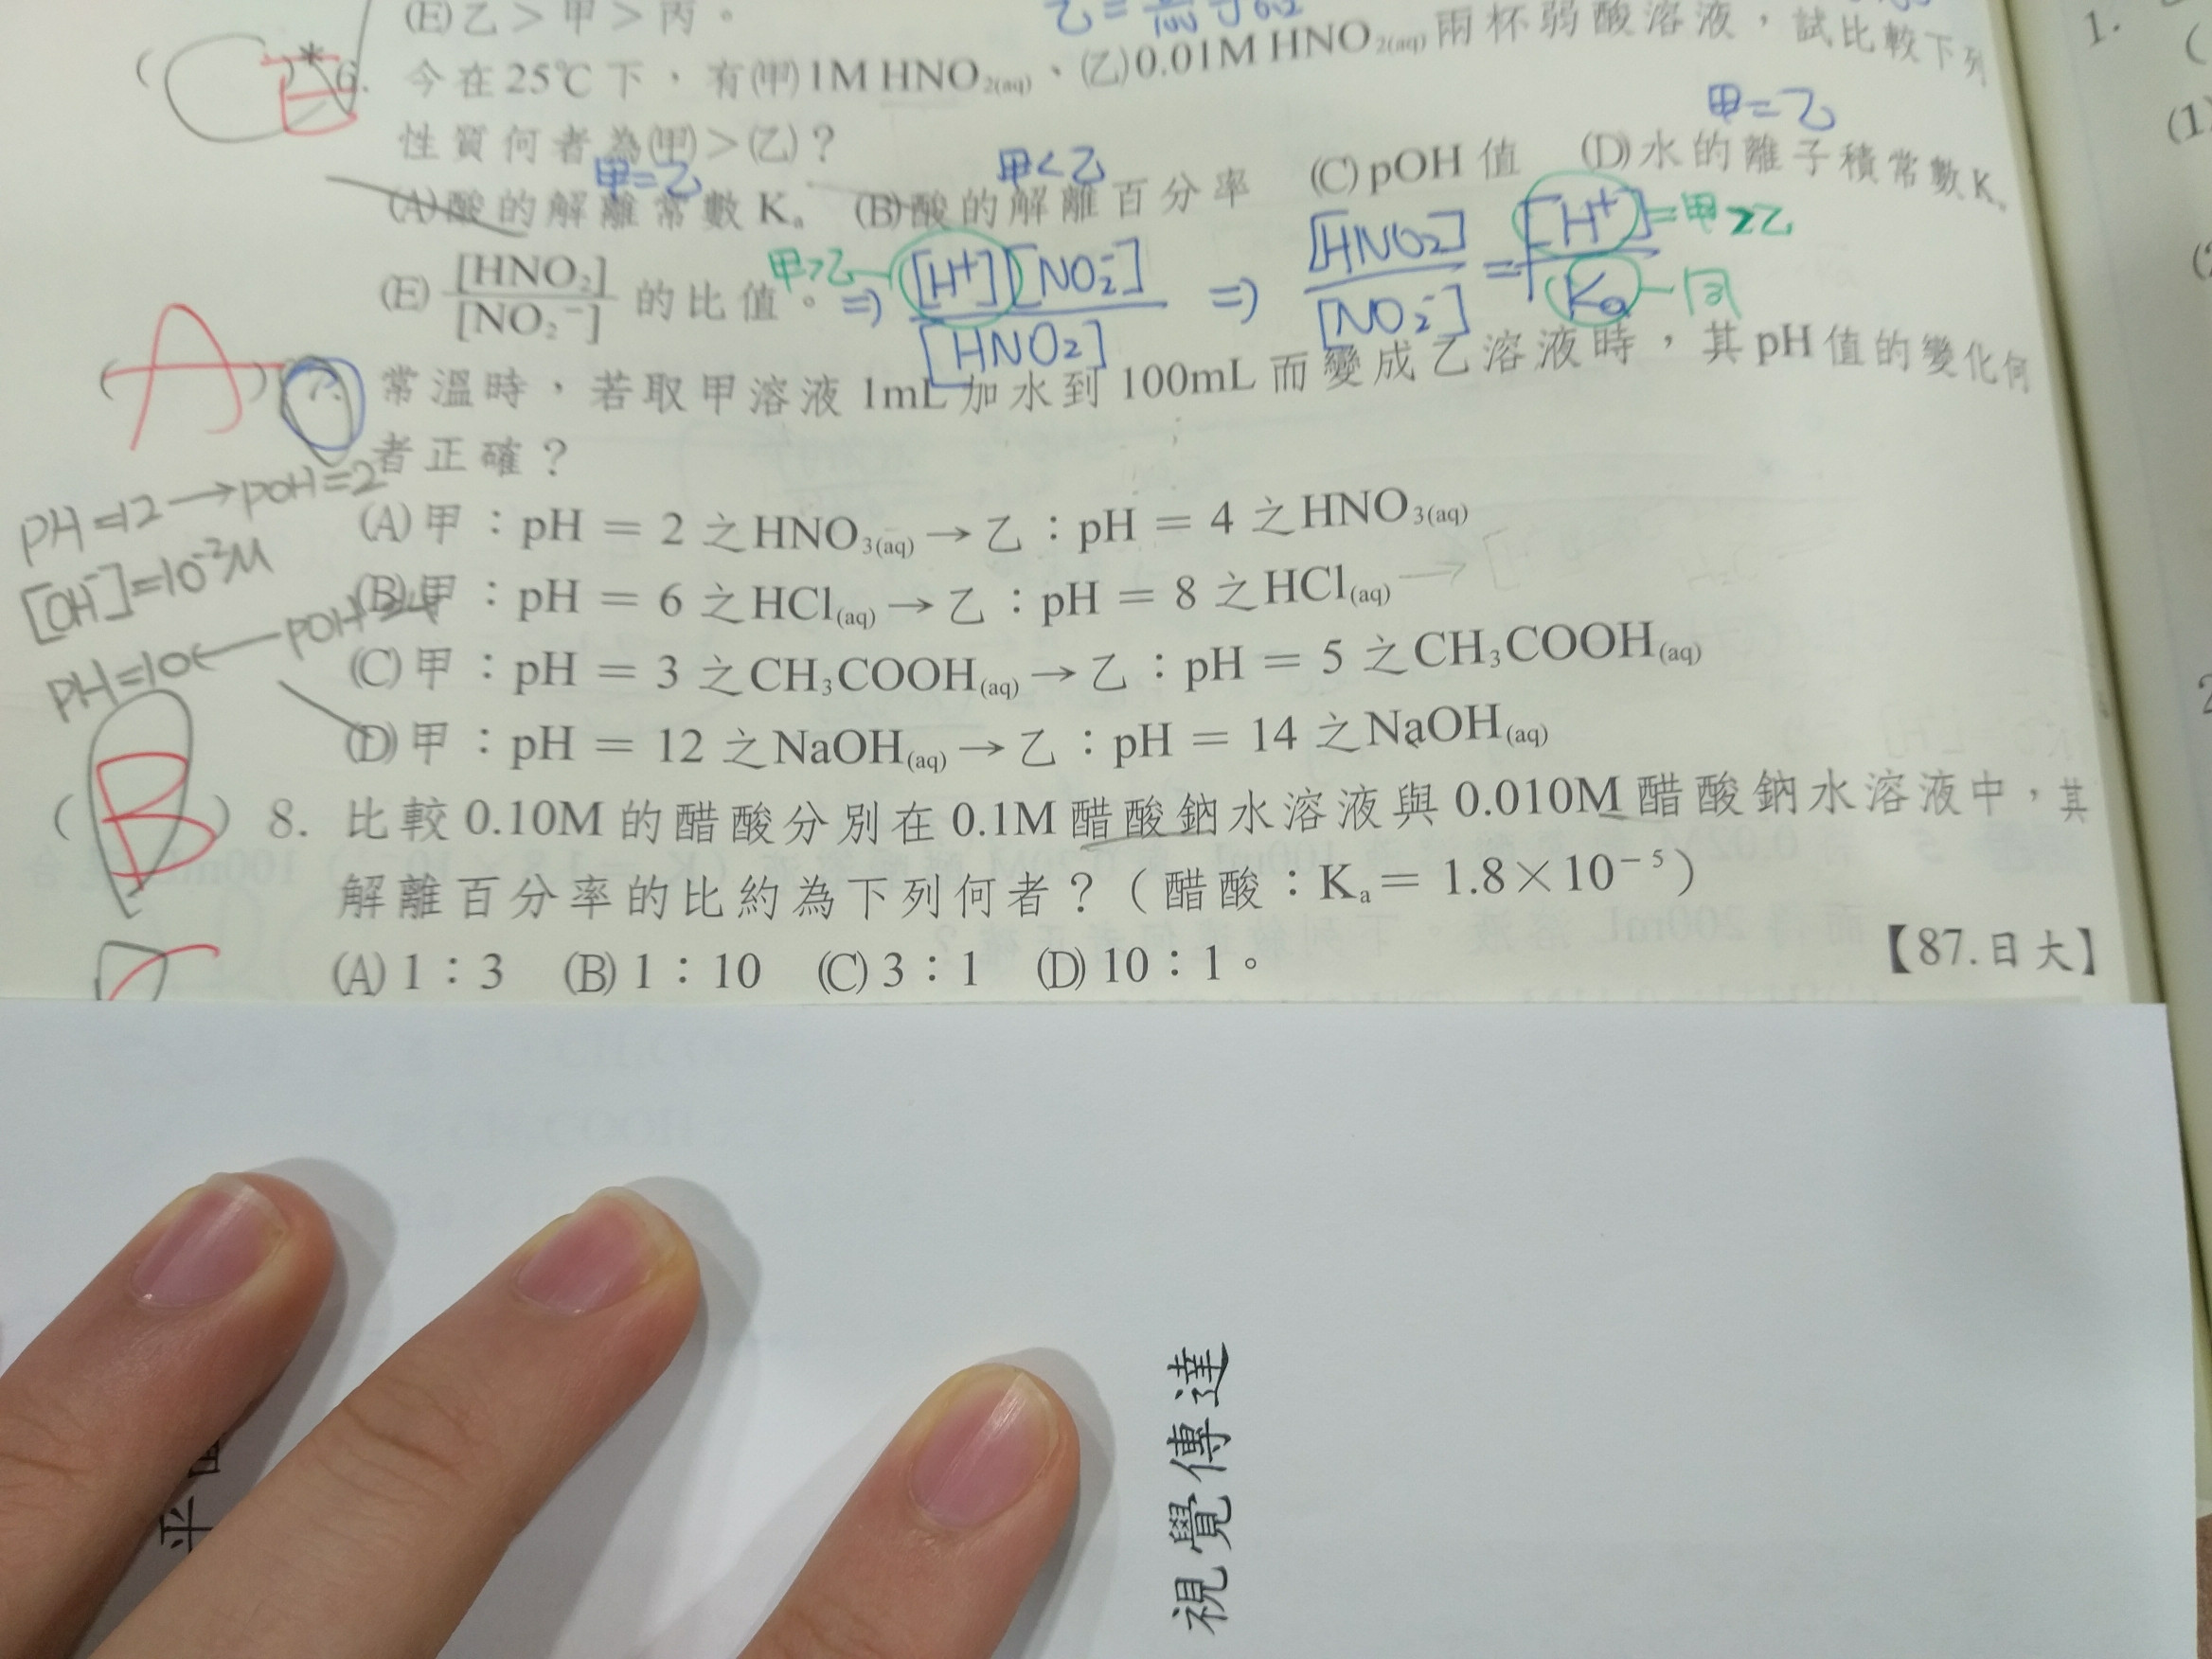 (E)乙>甲>丙。
乙=
(C E)*6. 今在25℃下，有(甲)1M HNO₂(aq)、(乙)0.01M HNO₂(aq)兩杯弱酸溶液，試比較下列
性質何者為(甲)>(乙)？
甲=乙 甲<乙 甲=乙
(A)酸的解離常數Kₐ (B)酸的解離百分率 (C)pOH值 (D)水的離子積常數K
(E)[HNO₂]/[NO₂⁻]的比值。 甲>乙 ⇒ [H⁺][NO₂⁻]/[HNO₂] ⇒ [HNO₂]/[NO₂⁻] = [H⁺]/Ka =甲>乙 同
(A) 7. 常溫時，若取甲溶液1mL加水到100mL而變成乙溶液時，其pH值的變化何
者正確？
PH=12→POH=2
[OH⁻]=10⁻²M
PH=10←POH=4
(A)甲：pH = 2 之HNO₃(aq)→乙：pH = 4 之HNO₃(aq)
(B)甲：pH = 6 之HCl(aq)→乙：pH = 8 之HCl(aq)
(C)甲：pH = 3 之CH₃COOH(aq)→乙：pH = 5 之CH₃COOH(aq)
(D)甲：pH = 12 之NaOH(aq)→乙：pH = 14 之NaOH(aq)
(B) 8. 比較0.10M的醋酸分別在0.1M醋酸鈉水溶液與0.010M醋酸鈉水溶液中，其
解離百分率的比約為下列何者？（醋酸：Kₐ= 1.8×10⁻⁵）
(A)1：3 (B)1：10 (C)3：1 (D)10：1。
【87.日大】
視覺傳達
平
1.
(1)
(2
2